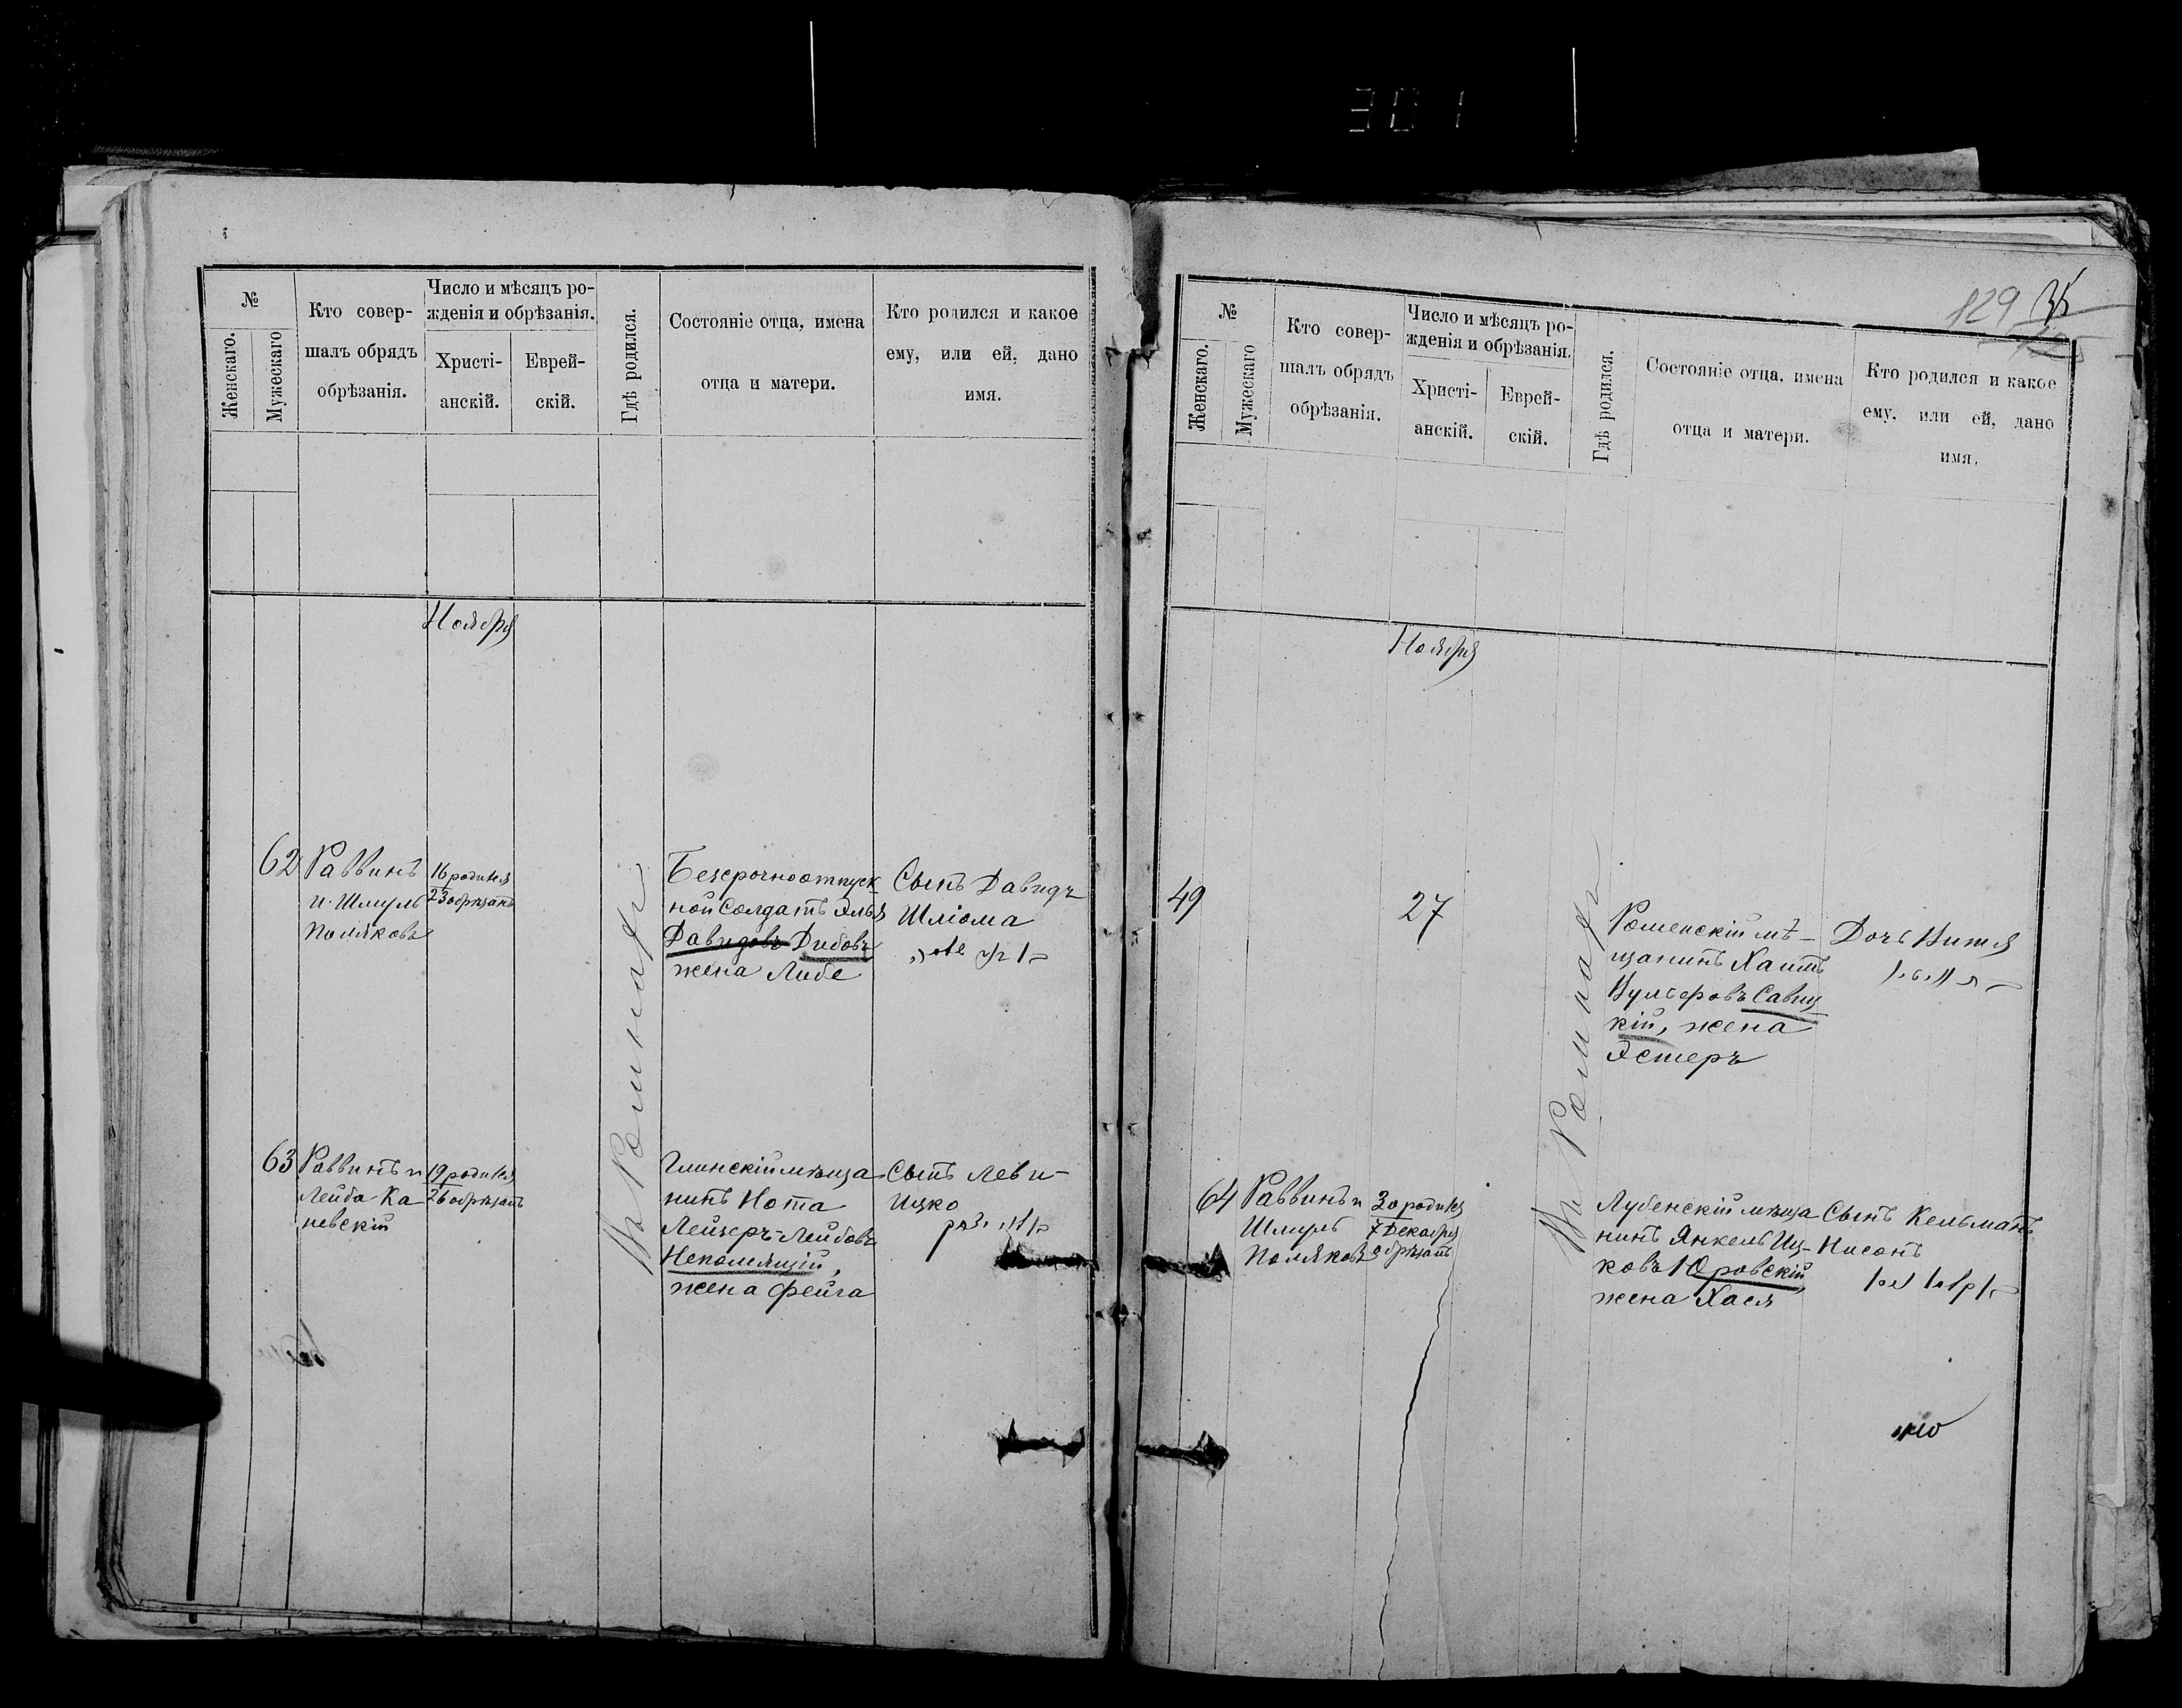 301
№
Женскаго.
Мужескаго
Кто совер-
шалъ обрядъ
обрѣзанія.
Число и мѣсяцъ ро-
жденія и обрѣзанія.
Христі-
анскій.
Еврей-
скій.
Гдѣ родился.
Состояніе отца, имена
отца и матери.
Кто родился и какое
ему, или ей, дано
имя.
Ноября
62
Раввинъ
и Шмуль
Поляковъ
16 родился
23 обрѣзанъ
Безсрочноотпуск
ной Солдатъ Элья
Давидовъ Дибовъ
жена Либе
Сынъ Давидъ
Шліома
63
Раввинъ и
Лейба Ка
невскій
19 родился
26 обрѣзанъ
Въ Ромнахъ
Глинскій мѣща
нинъ Нота
Лейзеръ-Лейбовъ
Непомящій,
жена Фейга
Сынъ Леви-
Ицко
129
№
Женскаго.
Мужескаго
Кто совер-
шалъ обрядъ
обрѣзанія.
Число и мѣсяцъ ро-
жденія и обрѣзанія.
Христі-
анскій.
Еврей-
скій.
Гдѣ родился.
Состояніе отца, имена
отца и матери.
Кто родился и какое
ему, или ей, дано
имя.
Ноября
49
27
Роменскій мѣ-
щанинъ Хаимъ
Вульфовъ Савиц
кій, жена
Эстеръ
Дочь Витля
64
Раввинъ и
Шмуль
Поляковъ
30 родился
7 Декабря
обрѣзанъ
Въ Ромнахъ
Лубенскій мѣща
нинъ Янкель Иц-
ковъ Юровскій
жена Хася
Сынъ Кельманъ
Нисонъ